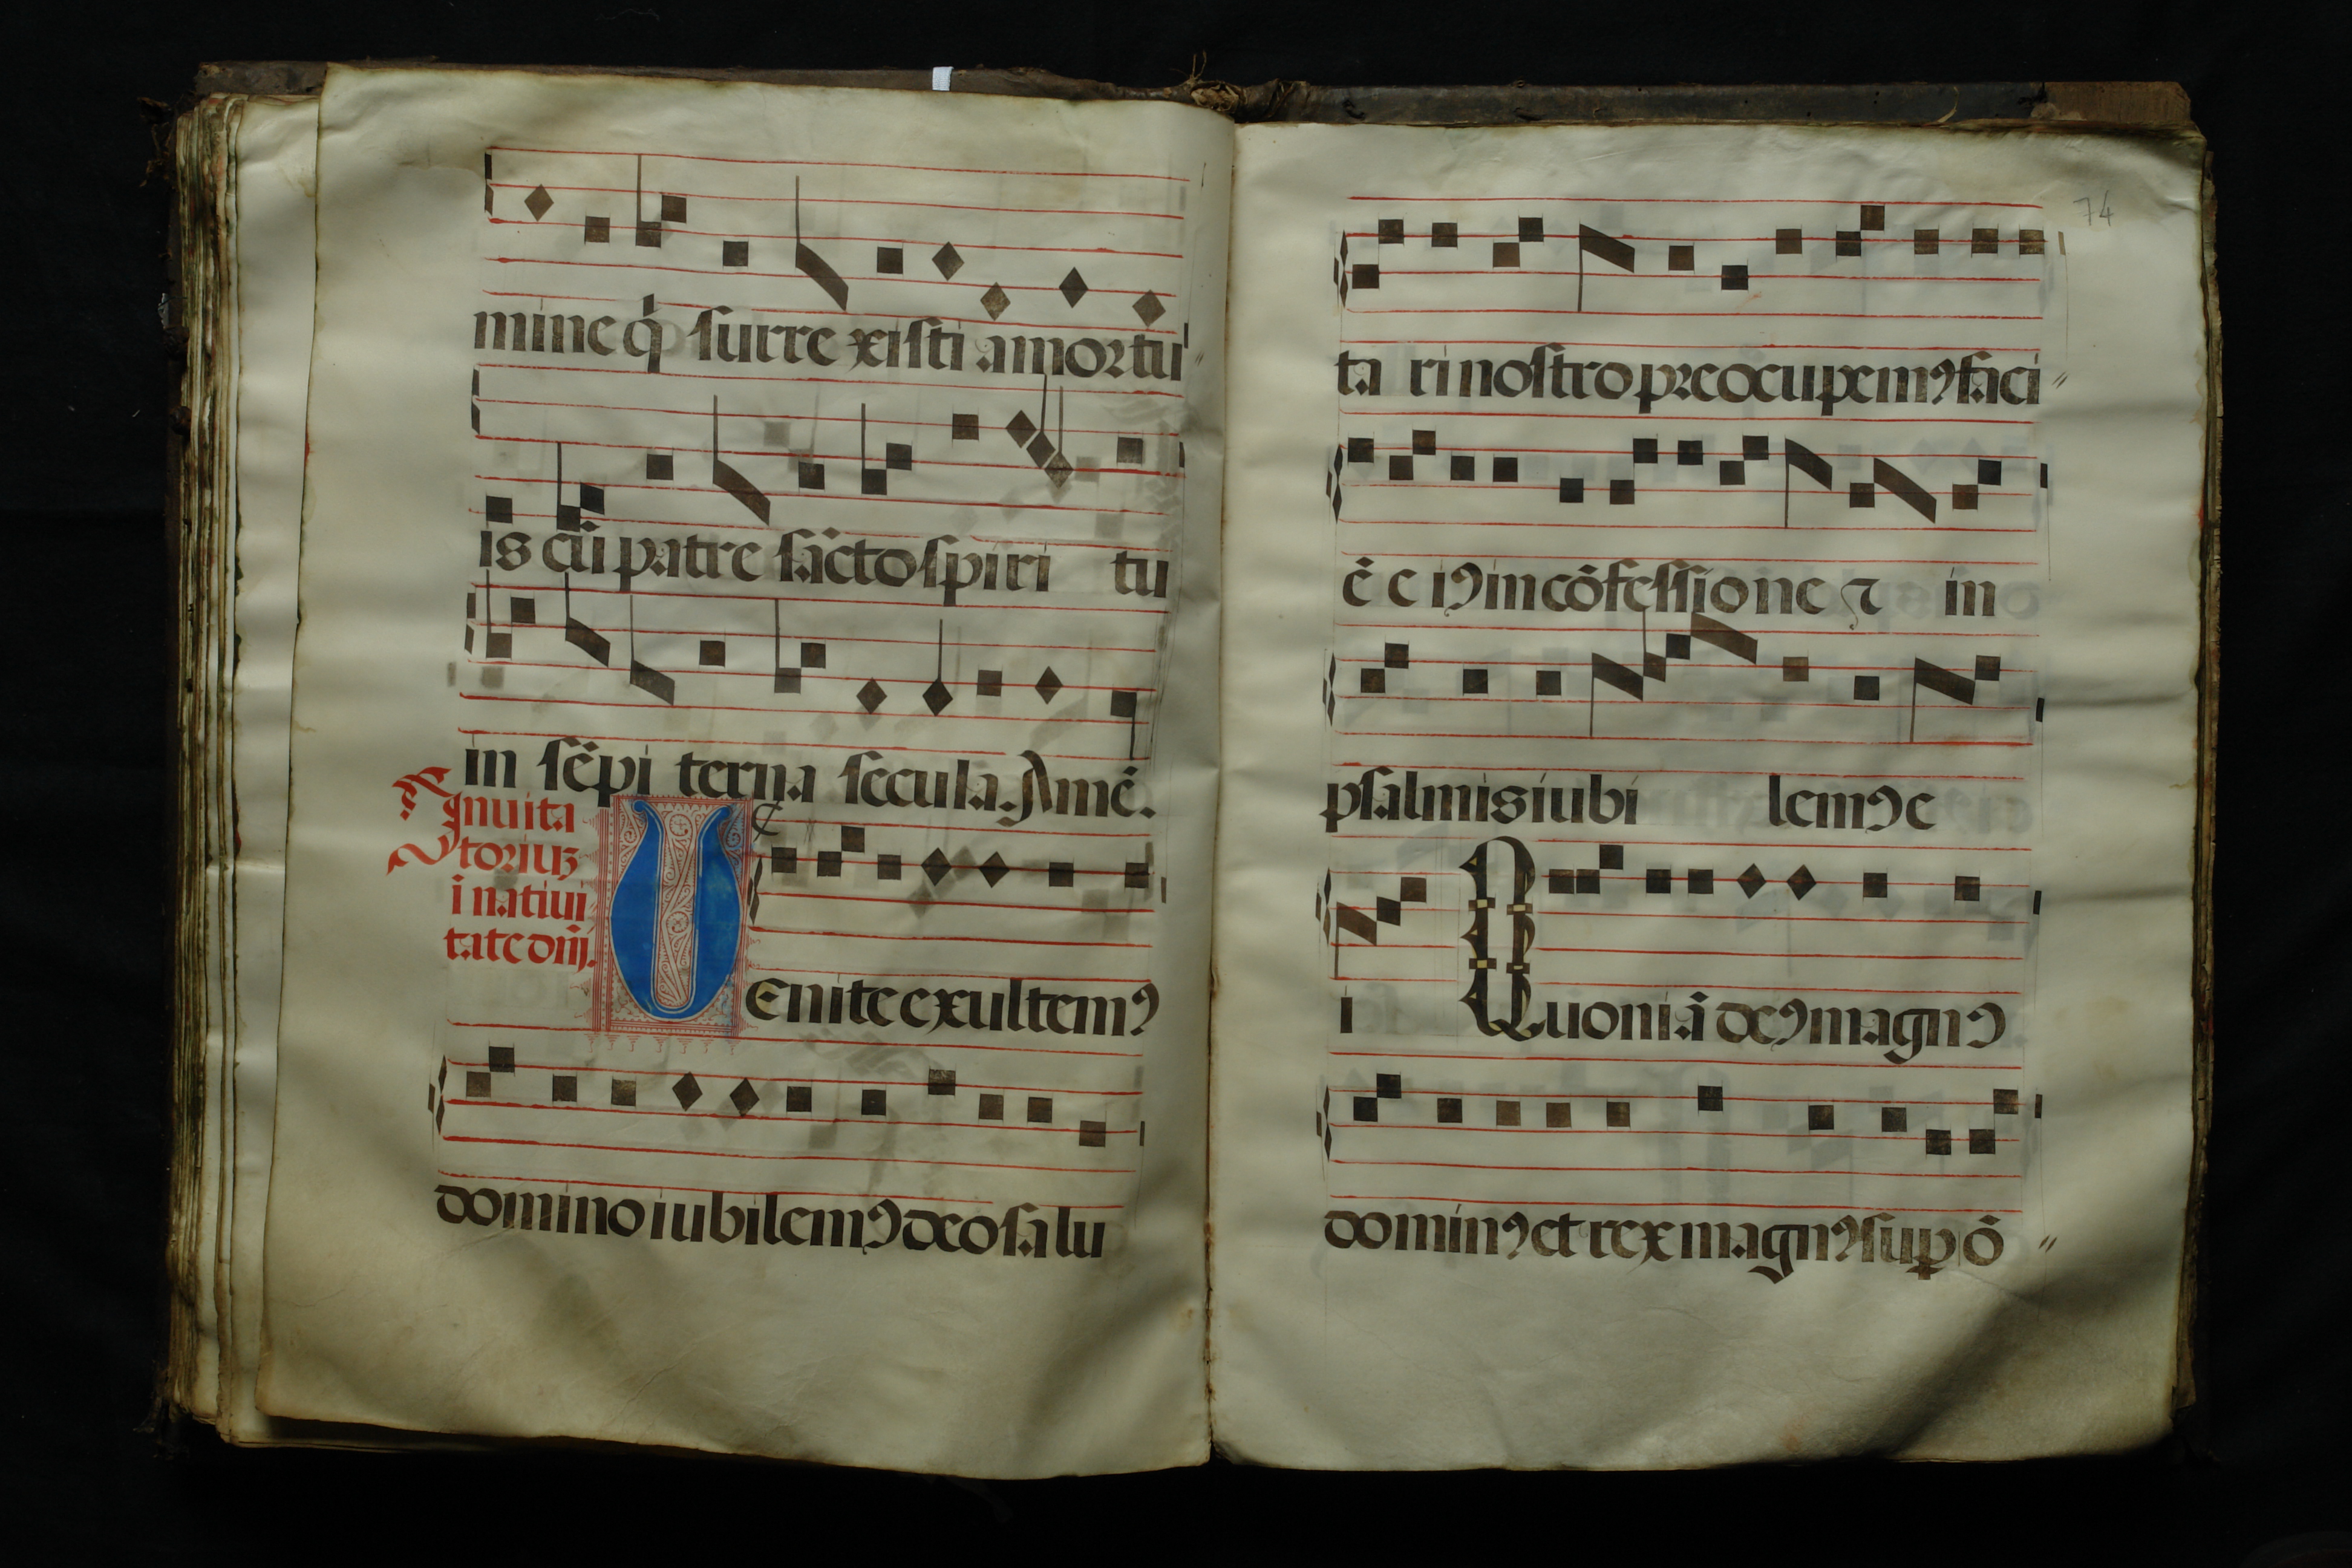 mine q̇ surre xisti amortu
is cū patre sācto spiri tu
in sēpi terna secula. Amē.
Inuita
toriuꝫ
i natiui
tate dn̄j.
Venite exultemꝰ
domino iubilemꝰ deo salu
74
ta ri nostro preocupemꝰ faci
ē e iꝰ in cōfessione ⁊ in
psalmis iubi lemꝰ e
i Quoniā deꝰ magnꝰ
dominꝰ et rex magnꝰ suꝑ ō